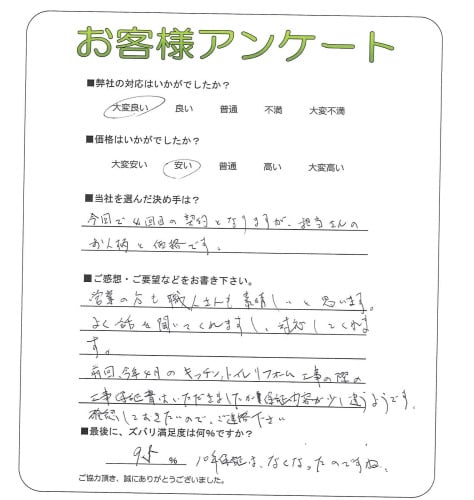 お客様アンケート
■弊社の対応はいかがでしたか？
大変良い 良い 普通 不満 大変不満
■価格はいかがでしたか？
大変安い 安い 普通 高い 大変高い
■当社を選んだ決め手は？
今回で4回目の契約となりますが、担当さんの
お人柄と価格です。
■ご感想・ご要望などをお書き下さい。
営業の方も職人さんも素晴しいと思います。
よく話を聞いてくれますし、対応してくれま
す。
前回、今年4月のキッチン、トイレリフォーム工事の際の
工事保証書はいただきましたが保証内容が少し違うようです。
確認しておきたいので、ご連絡下さい
■最後に、ズバリ満足度は何%ですか？
95 % 10年保証は、なくなったのですね。
ご協力頂き、誠にありがとうございました。